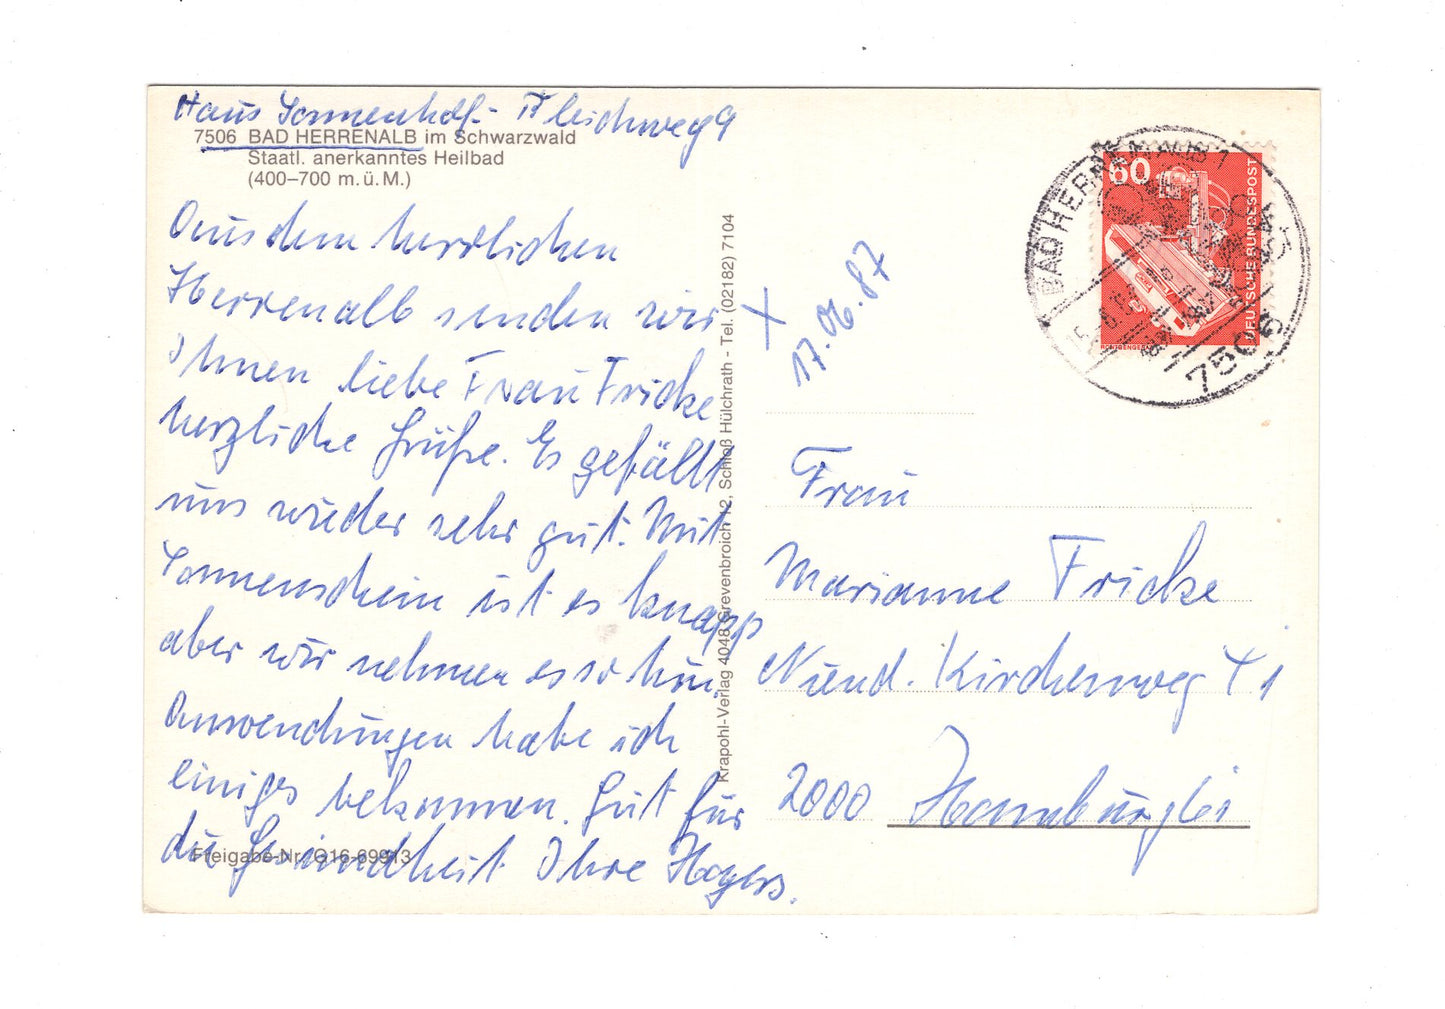 Haus Sonnenhof - Bleichweg 9
7506 BAD HERRENALB im Schwarzwald
Staatl. anerkanntes Heilbad
(400–700 m. ü. M.)
Aus dem herrlichen
Herrenalb senden wir
Ihnen liebe Frau Fricke
herzliche Grüße. Es gefällt
uns wieder sehr gut. Mit
Sonnenschein ist es knapp
aber wir nehmen es so hin.
Anwendungen habe ich
einiges bekommen. Gut für
die Gesundheit Ihre Hagers.
Freigabe-Nr. O16-69913
Krapohl-Verlag 4048 Grevenbroich 12, Schloß Hülchrath - Tel. (02182) 7104
X
17.06.87
60
DEUTSCHE BUNDESPOST
BAD HERRENALB 1
7506
Frau
Marianne Fricke
Niend. Kirchenweg 41
2000 Hamburg 61